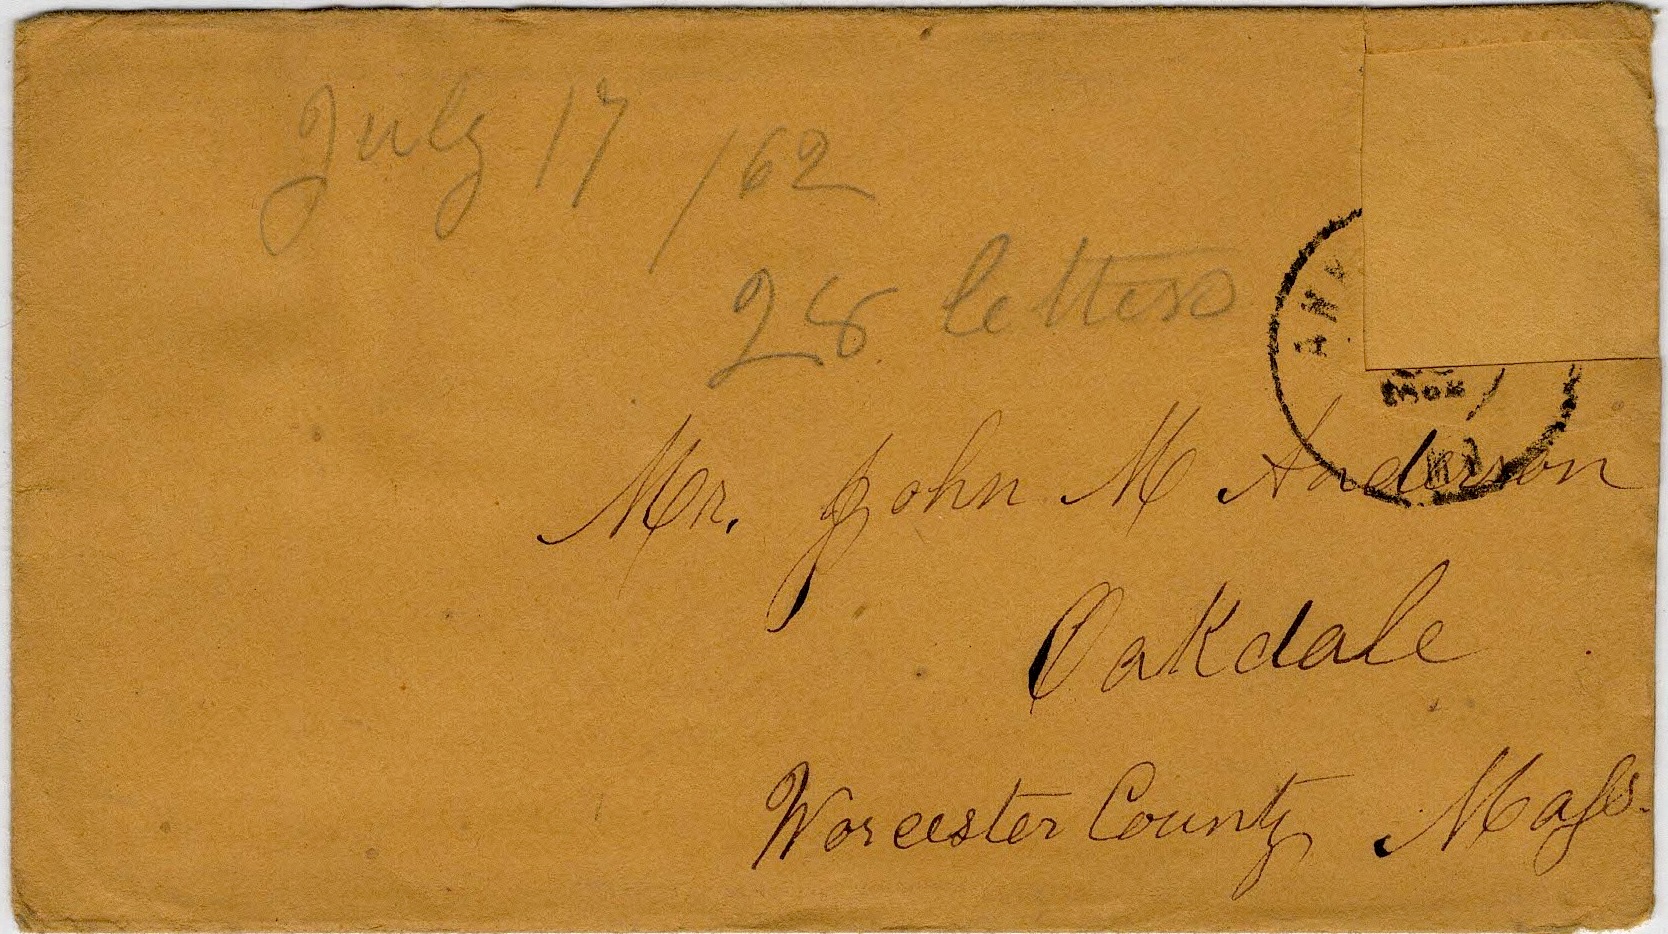 July 17 /62
28 letters
Mr. John M Anderson
Oakdale
Worcester County Mass.